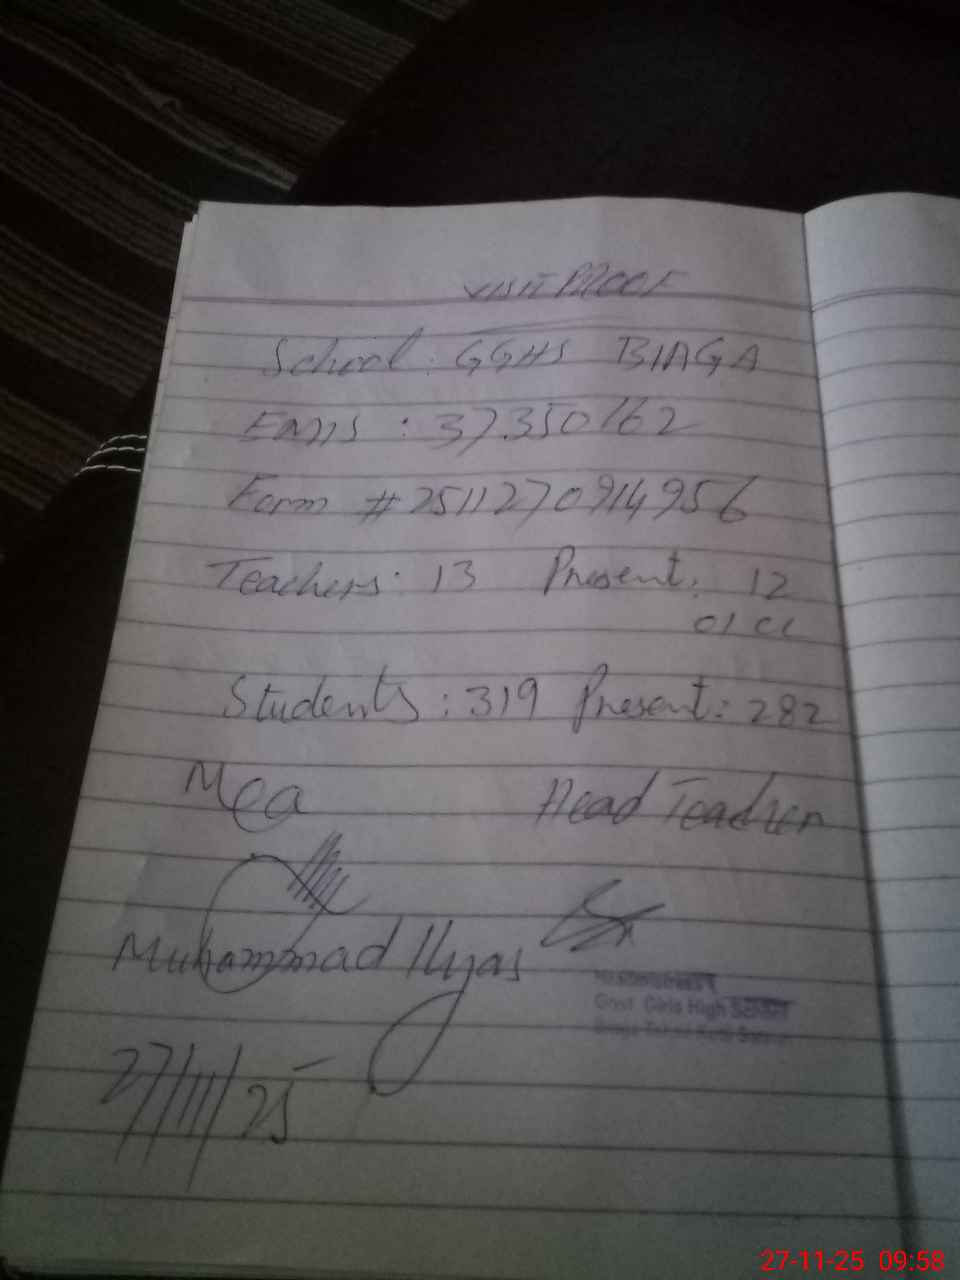 VISIT PROOF
School: GGHS BIAGA
Emis: 37350162
Form # 2511270914956
Teachers: 13 Present: 12
01 CL
Students: 319 Present: 282
Mea Head Teacher
Muhammad Ilyas
Govt Girls High School
27/11/25
27-11-25 09:58